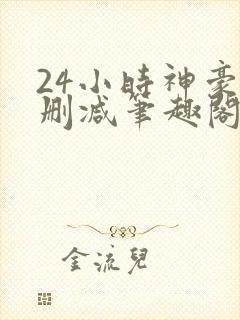 24小時神豪
刪減筆趣閣
金流兒